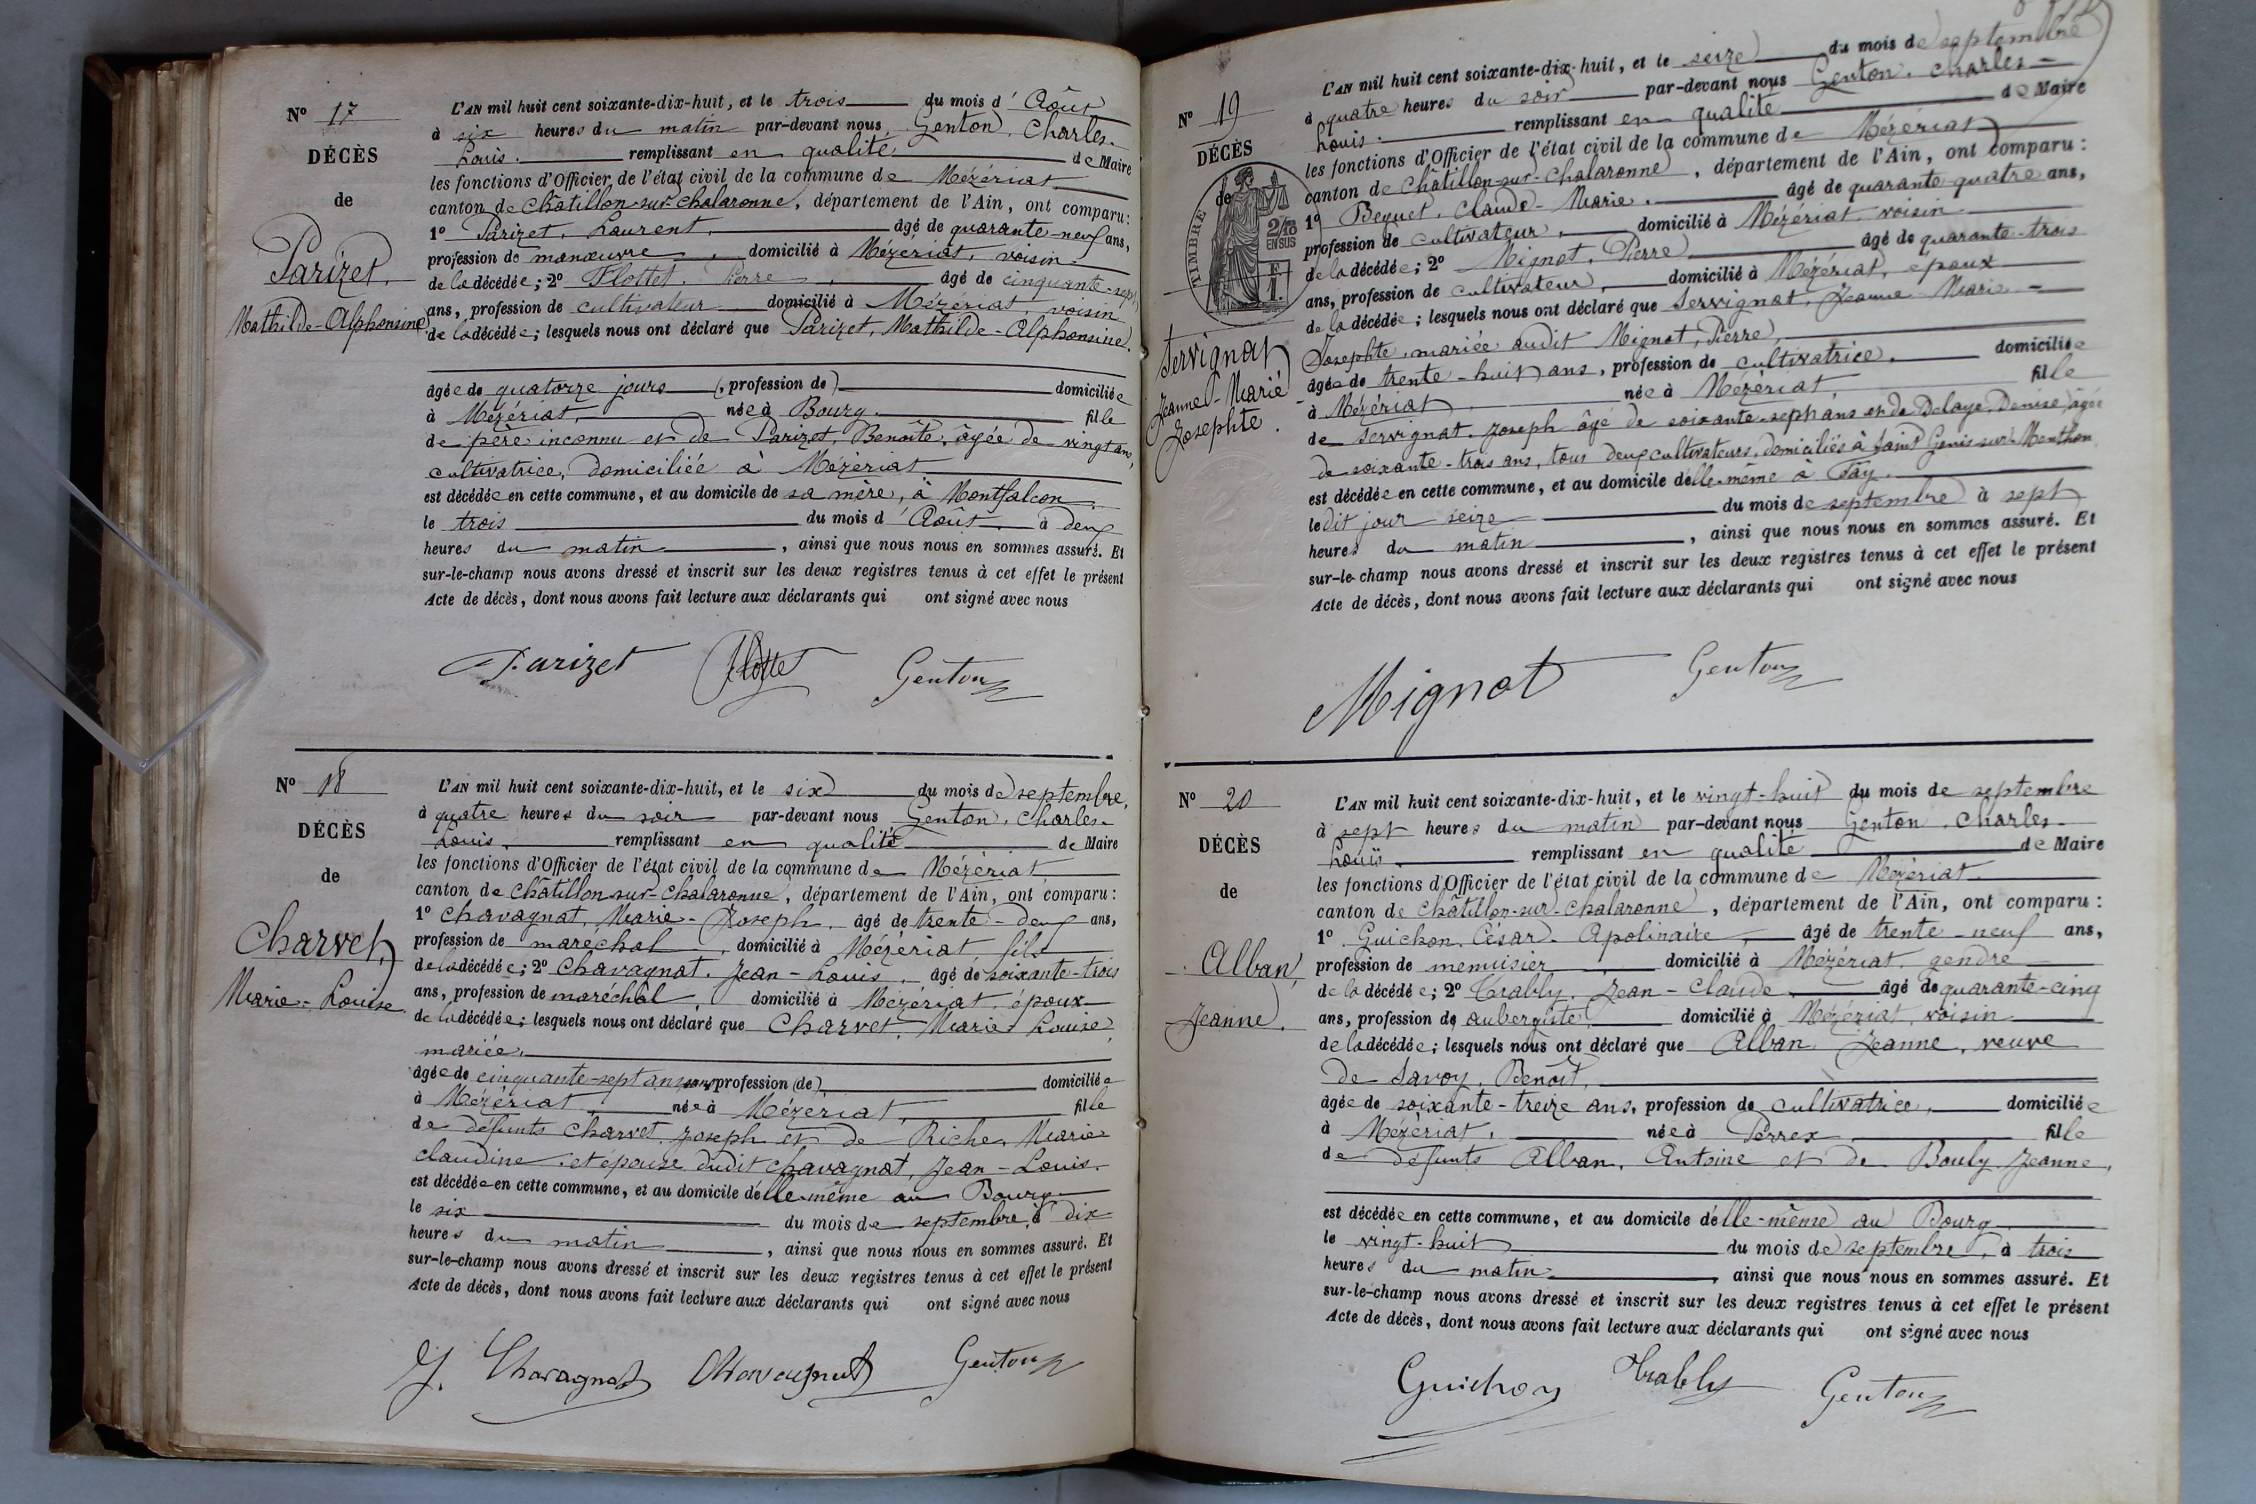 N° 17
DÉCÈS
de
Parizet,
Mathilde-Alphonsine
L'AN mil huit cent soixante-dix-huit, et le trois du mois d'Août
à six heures du matin par-devant nous, Genton, Charles-
Louis. remplissant en qualité de Maire
les fonctions d'Officier de l'état civil de la commune de Mézériat
canton de Châtillon-sur-Chalaronne, département de l'Ain, ont comparu:
1° Parizet, Laurent, âgé de quarante-neuf ans,
profession de manœuvre, domicilié à Mézériat, voisin
de la décédée; 2° Flottet, Pierre, âgé de cinquante-sept
ans, profession de cultivateur domicilié à Mézériat, voisin
de la décédée; lesquels nous ont déclaré que Parizet, Mathilde-Alphonsine,
âgée de quatorze jours (, profession de) domiciliée
à Mézériat, née à Bourg. fille
de père inconnu et de Parizet, Benoîte, âgée de vingt ans,
cultivatrice, domiciliée à Mézériat
est décédée en cette commune, et au domicile de sa mère, à Montfalcon
le trois du mois d'Août, à deux
heures du matin, ainsi que nous nous en sommes assuré. Et
sur-le-champ nous avons dressé et inscrit sur les deux registres tenus à cet effet le présent
Acte de décès, dont nous avons fait lecture aux déclarants qui ont signé avec nous
Parizet Flottet Genton
N° 18
DÉCÈS
de
Charvet,
Marie-Louise.
L'AN mil huit cent soixante-dix-huit, et le six du mois de septembre,
à quatre heures du soir par-devant nous Genton, Charles-
Louis. remplissant en qualité de Maire
les fonctions d'Officier de l'état civil de la commune de Mézériat,
canton de Châtillon-sur-Chalaronne, département de l'Ain, ont comparu:
1° Chavagnat, Marie-Joseph, âgé de trente-deux ans,
profession de maréchal, domicilié à Mézériat, fils
de la décédée; 2° Chavagnat, Jean-Louis, âgé de soixante-trois
ans, profession de maréchal, domicilié à Mézériat, époux
de la décédée; lesquels nous ont déclaré que Charvet, Marie Louise,
mariée,
âgée de cinquante-sept ans, sans profession (de) domiciliée
à Mézériat, née à Mézériat, fille
de défunts Charvet, Joseph et de Riche, Marie
Claudine, et épouse dudit Chavagnat, Jean-Louis.
est décédée en cette commune, et au domicile d'elle-même au Bourg
le six du mois de septembre, à dix
heures du matin, ainsi que nous nous en sommes assuré. Et
sur-le-champ nous avons dressé et inscrit sur les deux registres tenus à cet effet le présent
Acte de décès, dont nous avons fait lecture aux déclarants qui ont signé avec nous
J. Chavagnat Chavagnat Genton
N° 19
DÉCÈS
de
TIMBRE
2/10
EN SUS
1 F.
Servignat
Jeanne-Marie
Josephte.
L'AN mil huit cent soixante-dix-huit, et le seize du mois de septembre
à quatre heures du soir par-devant nous Genton, Charles-
Louis. remplissant en qualité de Maire
les fonctions d'Officier de l'état civil de la commune de Mézériat
canton de Châtillon-sur-Chalaronne, département de l'Ain, ont comparu:
1° Bequet, Claude-Marie, âgé de quarante-quatre ans,
profession de cultivateur, domicilié à Mézériat, voisin
de la décédée; 2° Mignot, Pierre âgé de quarante-trois
ans, profession de cultivateur, domicilié à Mézériat, époux
de la décédée; lesquels nous ont déclaré que Servignat, Jeanne-Marie-
Josephte, mariée audit Mignot, Pierre,
âgée de trente-huit ans, profession de cultivatrice, domiciliée
à Mézériat, née à Mézériat fille
de Servignat, Joseph âgé de soixante-sept ans et de Delaye, Denise, âgée
de soixante-trois ans, tous deux cultivateurs, domiciliés à Saint Genis-sur-Menthon
est décédée en cette commune, et au domicile d'elle-même à Fay.
le dit jour seize du mois de septembre à sept
heures du matin, ainsi que nous nous en sommes assuré. Et
sur-le-champ nous avons dressé et inscrit sur les deux registres tenus à cet effet le présent
Acte de décès, dont nous avons fait lecture aux déclarants qui ont signé avec nous
Mignot Genton
N° 20
DÉCÈS
de
Alban,
Jeanne.
L'AN mil huit cent soixante-dix-huit, et le vingt-huit du mois de septembre
à sept heures du matin par-devant nous Genton, Charles-
Louis. remplissant en qualité de Maire
les fonctions d'Officier de l'état civil de la commune de Mézériat
canton de Châtillon-sur-Chalaronne, département de l'Ain, ont comparu:
1° Guichon, César-Apolinaire, âgé de trente-neuf ans,
profession de menuisier, domicilié à Mézériat, gendre
de la décédée; 2° Trably, Jean-Claude, âgé de quarante-cinq
ans, profession de aubergiste, domicilié à Mézériat, voisin
de la décédée; lesquels nous ont déclaré que Alban Jeanne, veuve
de Savoy, Benoît,
âgée de soixante-treize ans, profession de cultivatrice, domiciliée
à Mézériat, née à Perrex fille
de défunts Alban, Antoine et de Bouly Jeanne,
est décédée en cette commune, et au domicile d'elle-même au Bourg
le vingt-huit du mois de septembre, à trois
heures du matin, ainsi que nous nous en sommes assuré. Et
sur-le-champ nous avons dressé et inscrit sur les deux registres tenus à cet effet le présent
Acte de décès, dont nous avons fait lecture aux déclarants qui ont signé avec nous
Guichon Trably Genton